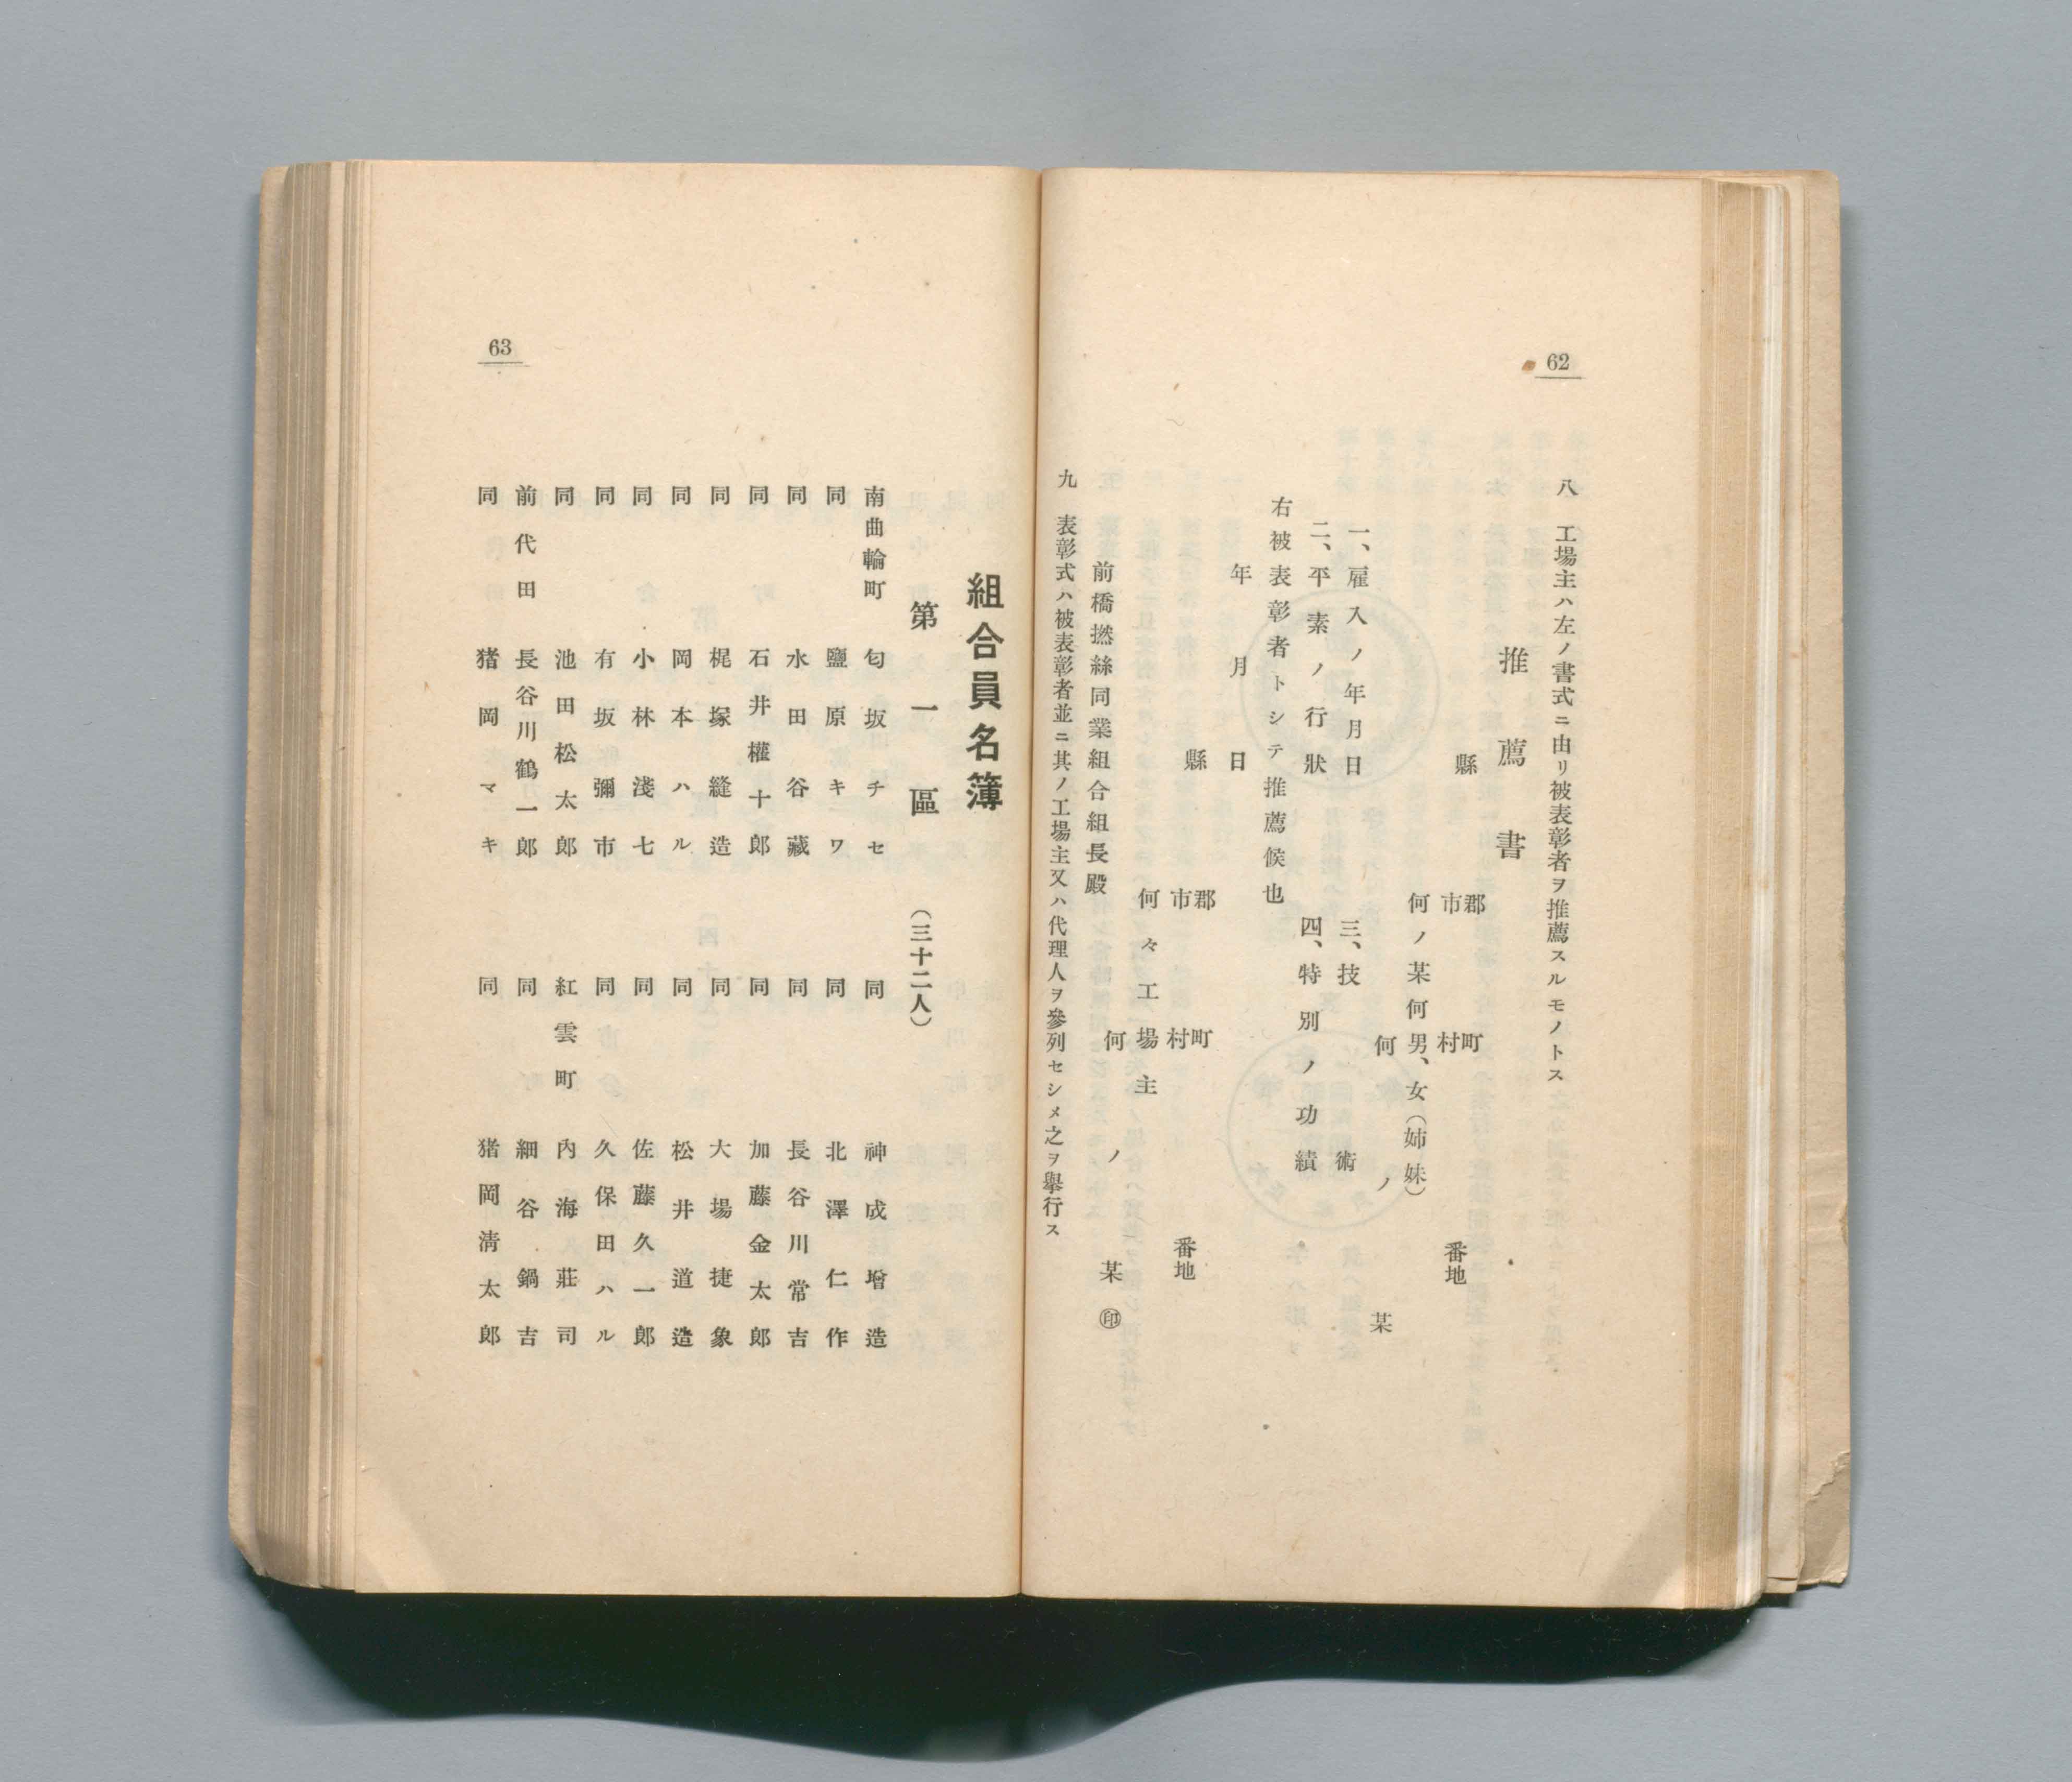 62
八 工場主ハ左ノ書式ニ由リ被表彰者ヲ推薦スルモノトス
推薦書
縣 郡市 町村 番地
何ノ某何男、女（姉妹）
何ノ某
一、雇入ノ年月日 三、技術
二、平素ノ行狀 四、特別ノ功績
右被表彰者トシテ推薦候也
年月日
縣 郡市 町村 番地
何々工場主
何ノ某㊞
前橋撚絲同業組合組長殿
九 表彰式ハ被表彰者並ニ其ノ工場主又ハ代理人ヲ參列セシメ之ヲ擧行ス
63
組合員名簿
第一區 （三十二人）
南曲輪町 匂坂チセ 同 神成增造
同 鹽原キワ 同 北澤仁作
同 水田谷藏 同 長谷川常吉
同 石井權十郎 同 加藤金太郎
同 梶塚縫造 同 大場捷象
同 岡本ハル 同 松井道造
同 小林淺七 同 佐藤久一郎
同 有坂彌市 同 久保田ハル
同 池田松太郎 紅雲町 內海莊司
前代田 長谷川鶴一郎 同 細谷鍋吉
同 猪岡マキ 同 猪岡淸太郎